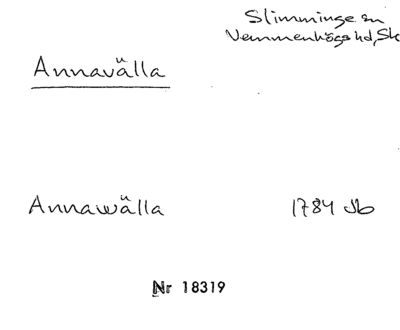 Slimminge sn
Vemmenhögs hd, Sk
Annavälla
Annawälla 1784 Jb
Nr 18319